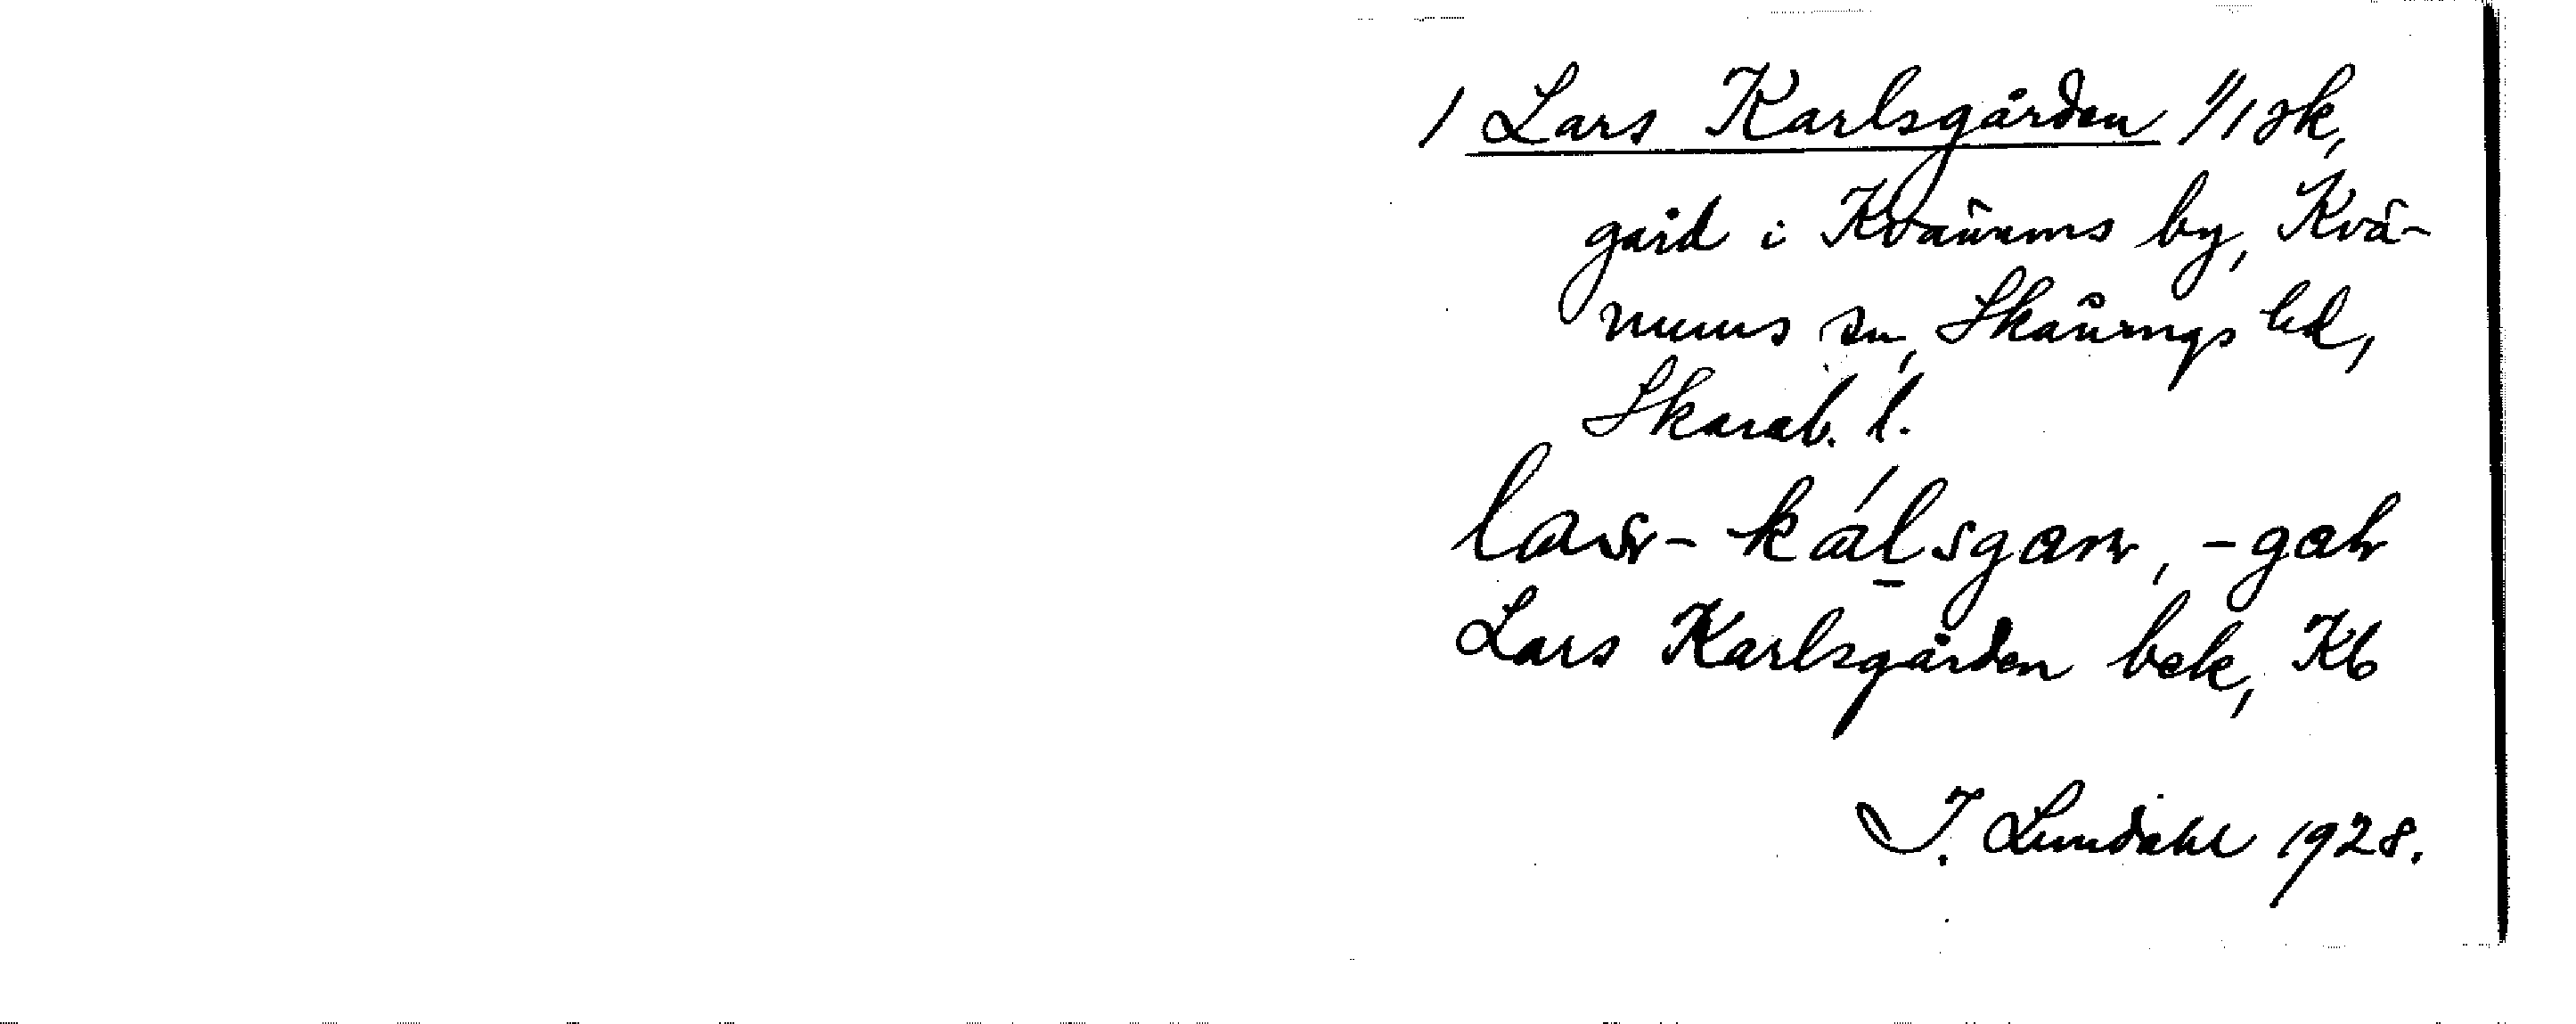 / Lars Karlsgården 1/1 sk,
gård i Kvänums by, Kvä-
nums sn, Skånings hd,
Skarab. l.
Lars Karlsgården bek, Kb
I. Lundahl 1928.